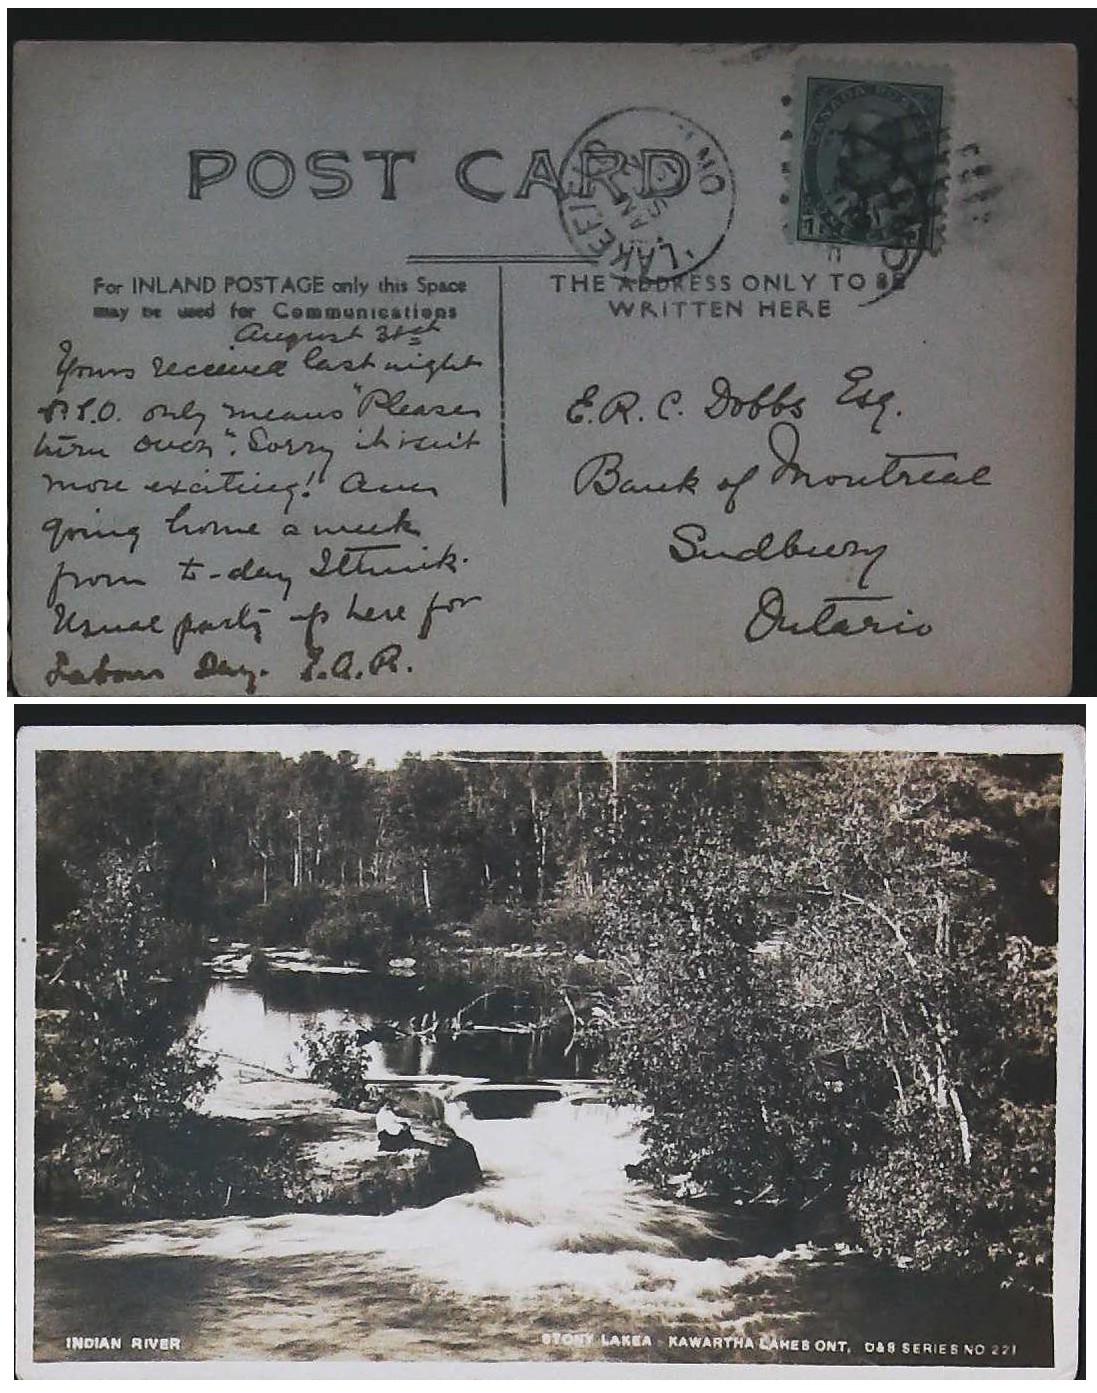 POST CARD
LAKEFIE
AM
SE
MO
CANADA POSTAGE
1
For INLAND POSTAGE only this Space
may be used for Communications
THE ADDRESS ONLY TO BE
WRITTEN HERE
August 31st
Yours received last night
P.T.O. only means "Please
turn over". Sorry it isn't
more exciting! Am
going home a week
from to-day I think.
Usual party up here for
Labour Day. I.A.R.
E.R.C. Dobbs Esq.
Bank of Montreal
Sudbury
Ontario
INDIAN RIVER
STONY LAKEA - KAWARTHA LAKES ONT, D&B SERIES NO 221